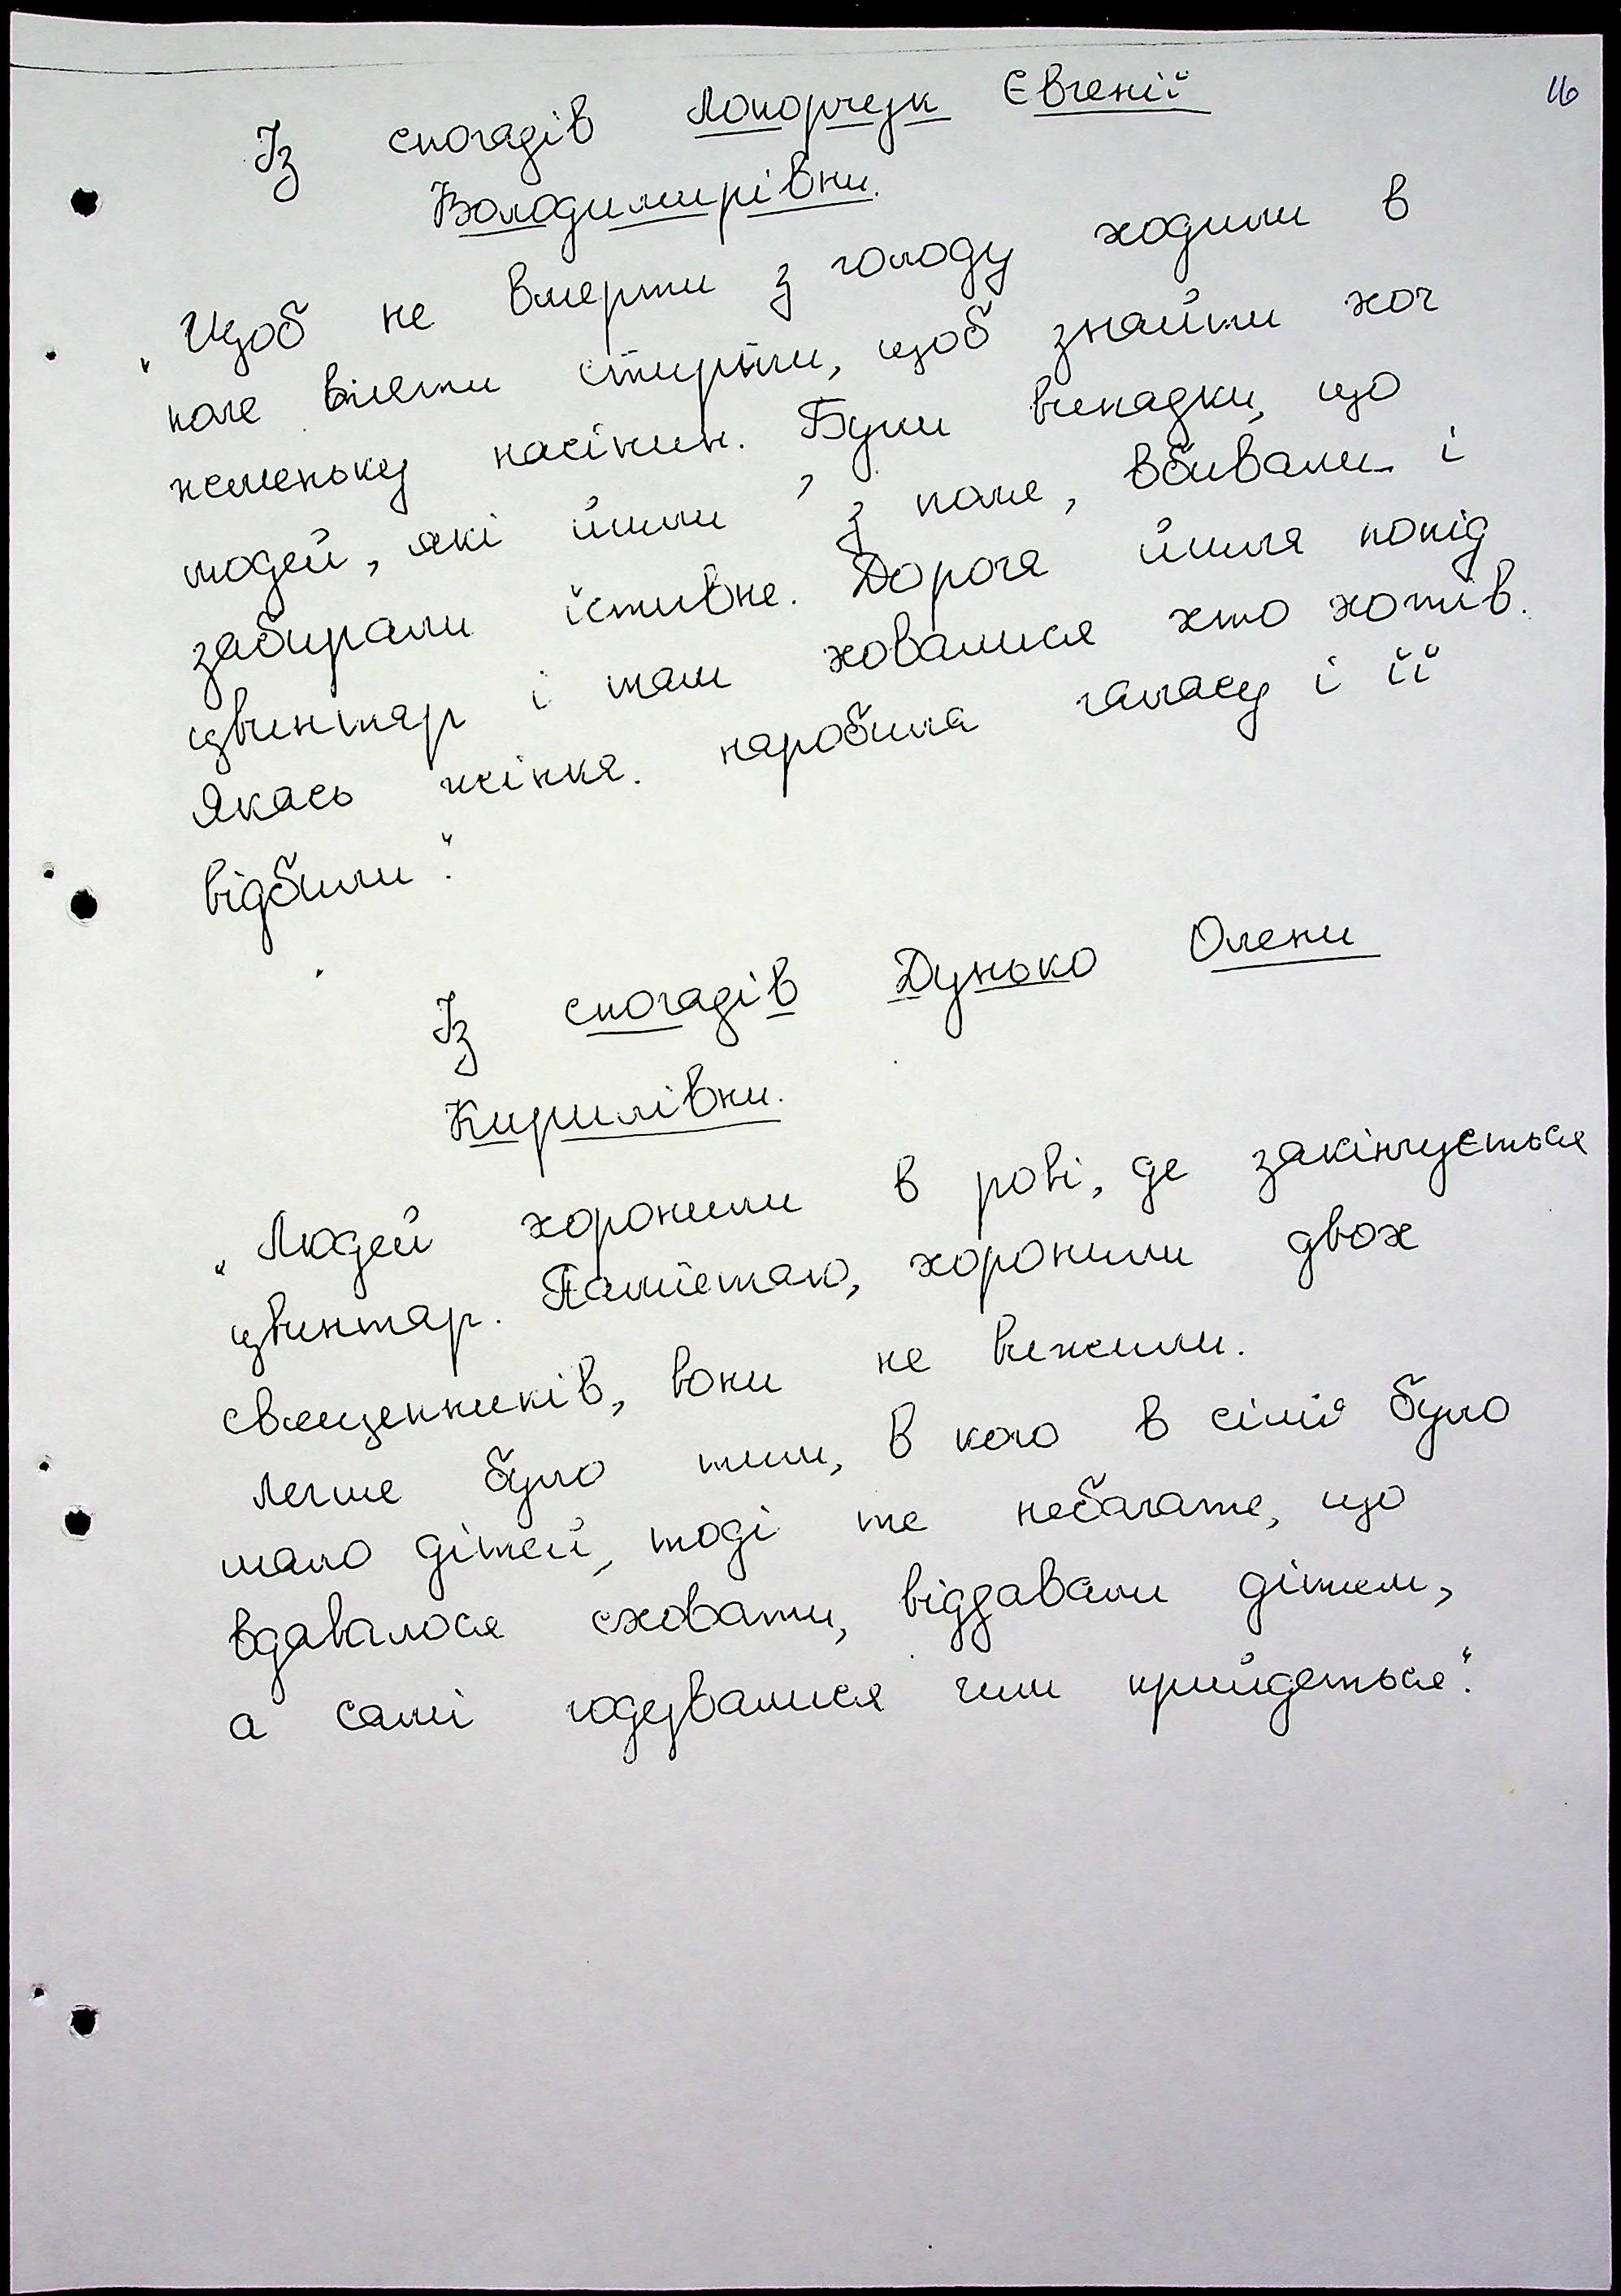 16
Із спогадів Лопорчук Євгенії
Володимирівни.
„Щоб не вмерти з голоду ходили в
поле віяти стирти, щоб знайти хоч
жменьку насінин. Були випадки, що
людей, які йшли з поля, вбивали і
забирали їстивне. Дорога йшла попід
цвинтар і там ховалися хто хотів.
Якась жінка наробила галасу і її
відбили".
Із спогадів Дунько Олени
Кирилівни.
„Людей хоронили в рові, де закінчується
цвинтар. Пам'ятаю, хоронили двох
священників, вони не вижили.
Легше було тим, в кого в сім'ї було
мало дітей, тоді те небагате, що
вдавалося сховати, віддавали дітям,
а самі годувалися чим прийдеться".